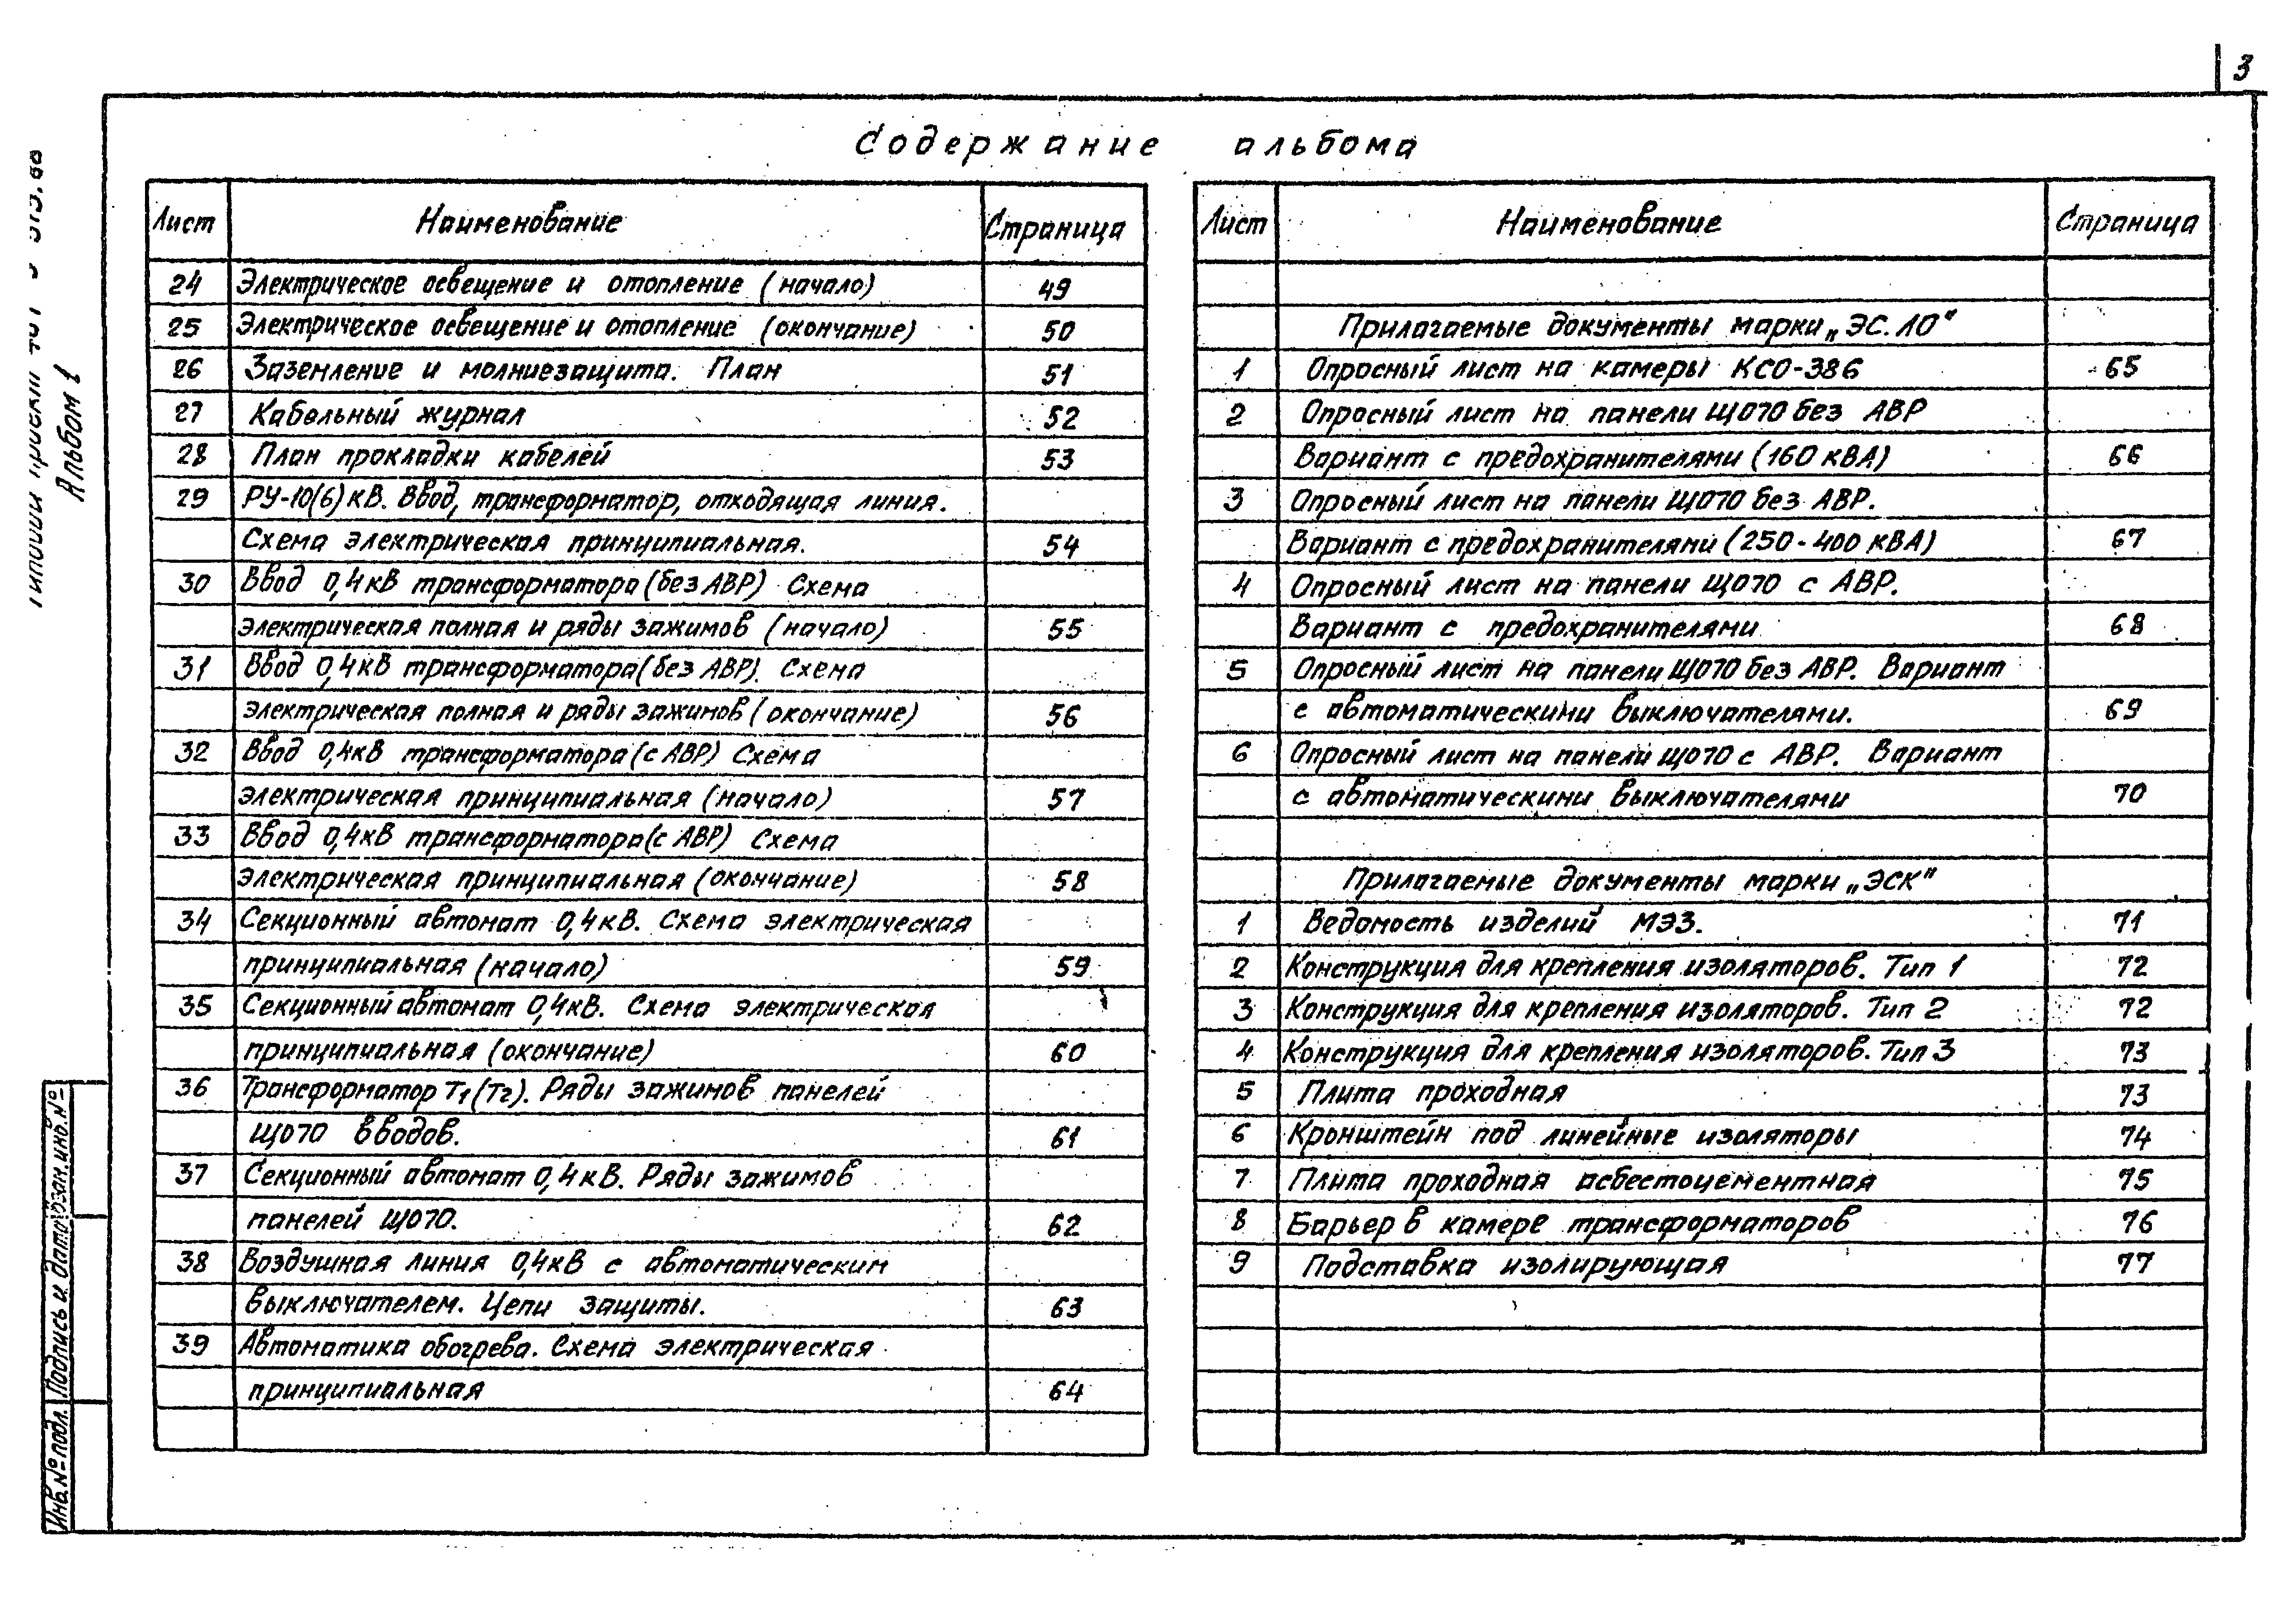 3
Содержание альбома
Альбом 1
Лист Наименование Страница
24 Электрическое освещение и отопление (начало) 49
25 Электрическое освещение и отопление (окончание) 50
26 Заземление и молниезащита. План 51
27 Кабельный журнал 52
28 План прокладки кабелей 53
29 РУ-10(6) кВ. Ввод, трансформатор, отходящая линия.
Схема электрическая принципиальная. 54
30 Ввод 0,4кВ трансформатора (без АВР) Схема
электрическая полная и ряды зажимов (начало) 55
31 Ввод 0,4кВ трансформатора (без АВР). Схема
электрическая полная и ряды зажимов (окончание) 56
32 Ввод 0,4кВ трансформатора (с АВР) Схема
электрическая принципиальная (начало) 57
33 Ввод 0,4кВ трансформатора (с АВР) Схема
электрическая принципиальная (окончание) 58
34 Секционный автомат 0,4кВ. Схема электрическая
принципиальная (начало) 59
35 Секционный автомат 0,4кВ. Схема электрическая
принципиальная (окончание) 60
36 Трансформатор Т1(Т2). Ряды зажимов панелей
ЩО70 вводов. 61
37 Секционный автомат 0,4кВ. Ряды зажимов
панелей ЩО70. 62
38 Воздушная линия 0,4кВ с автоматическим
выключателем. Цепи защиты. 63
39 Автоматика обогрева. Схема электрическая
принципиальная 64
Лист Наименование Страница
Прилагаемые документы марки „ЭС.ЛО"
1 Опросный лист на камеры КСО-386 65
2 Опросный лист на панели ЩО70 без АВР
Вариант с предохранителями (160 кВА) 66
3 Опросный лист на панели ЩО70 без АВР.
Вариант с предохранителями (250-400 кВА) 67
4 Опросный лист на панели ЩО70 с АВР.
Вариант с предохранителями 68
5 Опросный лист на панели ЩО70 без АВР. Вариант
с автоматическими выключателями. 69
6 Опросный лист на панели ЩО70 с АВР. Вариант
с автоматическими выключателями 70
Прилагаемые документы марки „ЭСК"
1 Ведомость изделий МЭЗ. 71
2 Конструкция для крепления изоляторов. Тип 1 72
3 Конструкция для крепления изоляторов. Тип 2 72
4 Конструкция для крепления изоляторов. Тип 3 73
5 Плита проходная 73
6 Кронштейн под линейные изоляторы 74
7 Плита проходная асбестоцементная 75
8 Барьер в камере трансформаторов 76
9 Подставка изолирующая 77
Инв.№подл. Подпись и дата Взам.инв.№